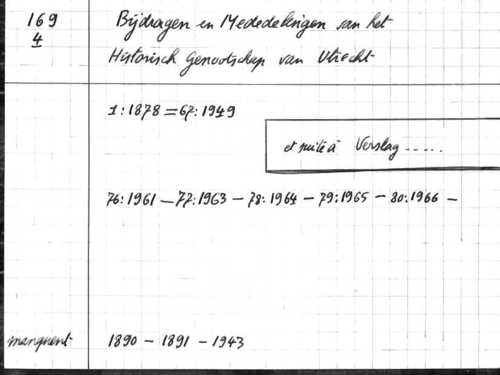 169
4
Bijdragen en Mededelingen van het
Historisch Genootschap van Utrecht
1:1878 = 67:1949
et suite à Verslag .....
76:1961 — 77:1963 — 78:1964 — 79:1965 — 80:1966 —
manquent 1890 — 1891 — 1943